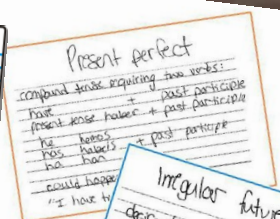 Present perfect
compound tense requiring two verbs:
have + past participle
present tense haber + past participle
he hemos
has habéis + past participle
ha han
could happe
"I have
Irregular futu